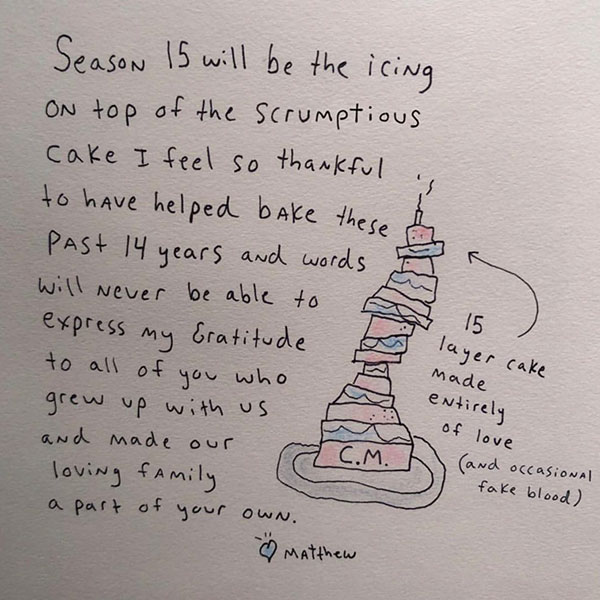 Season 15 will be the icing
on top of the scrumptious
cake I feel so thankful
to have helped bake these
past 14 years and words
will never be able to
express my Gratitude
to all of you who
grew up with us
and made our
loving family
a part of your own.
Matthew
15
layer cake
made
entirely
of love
(and occasional
fake blood)
C.M.